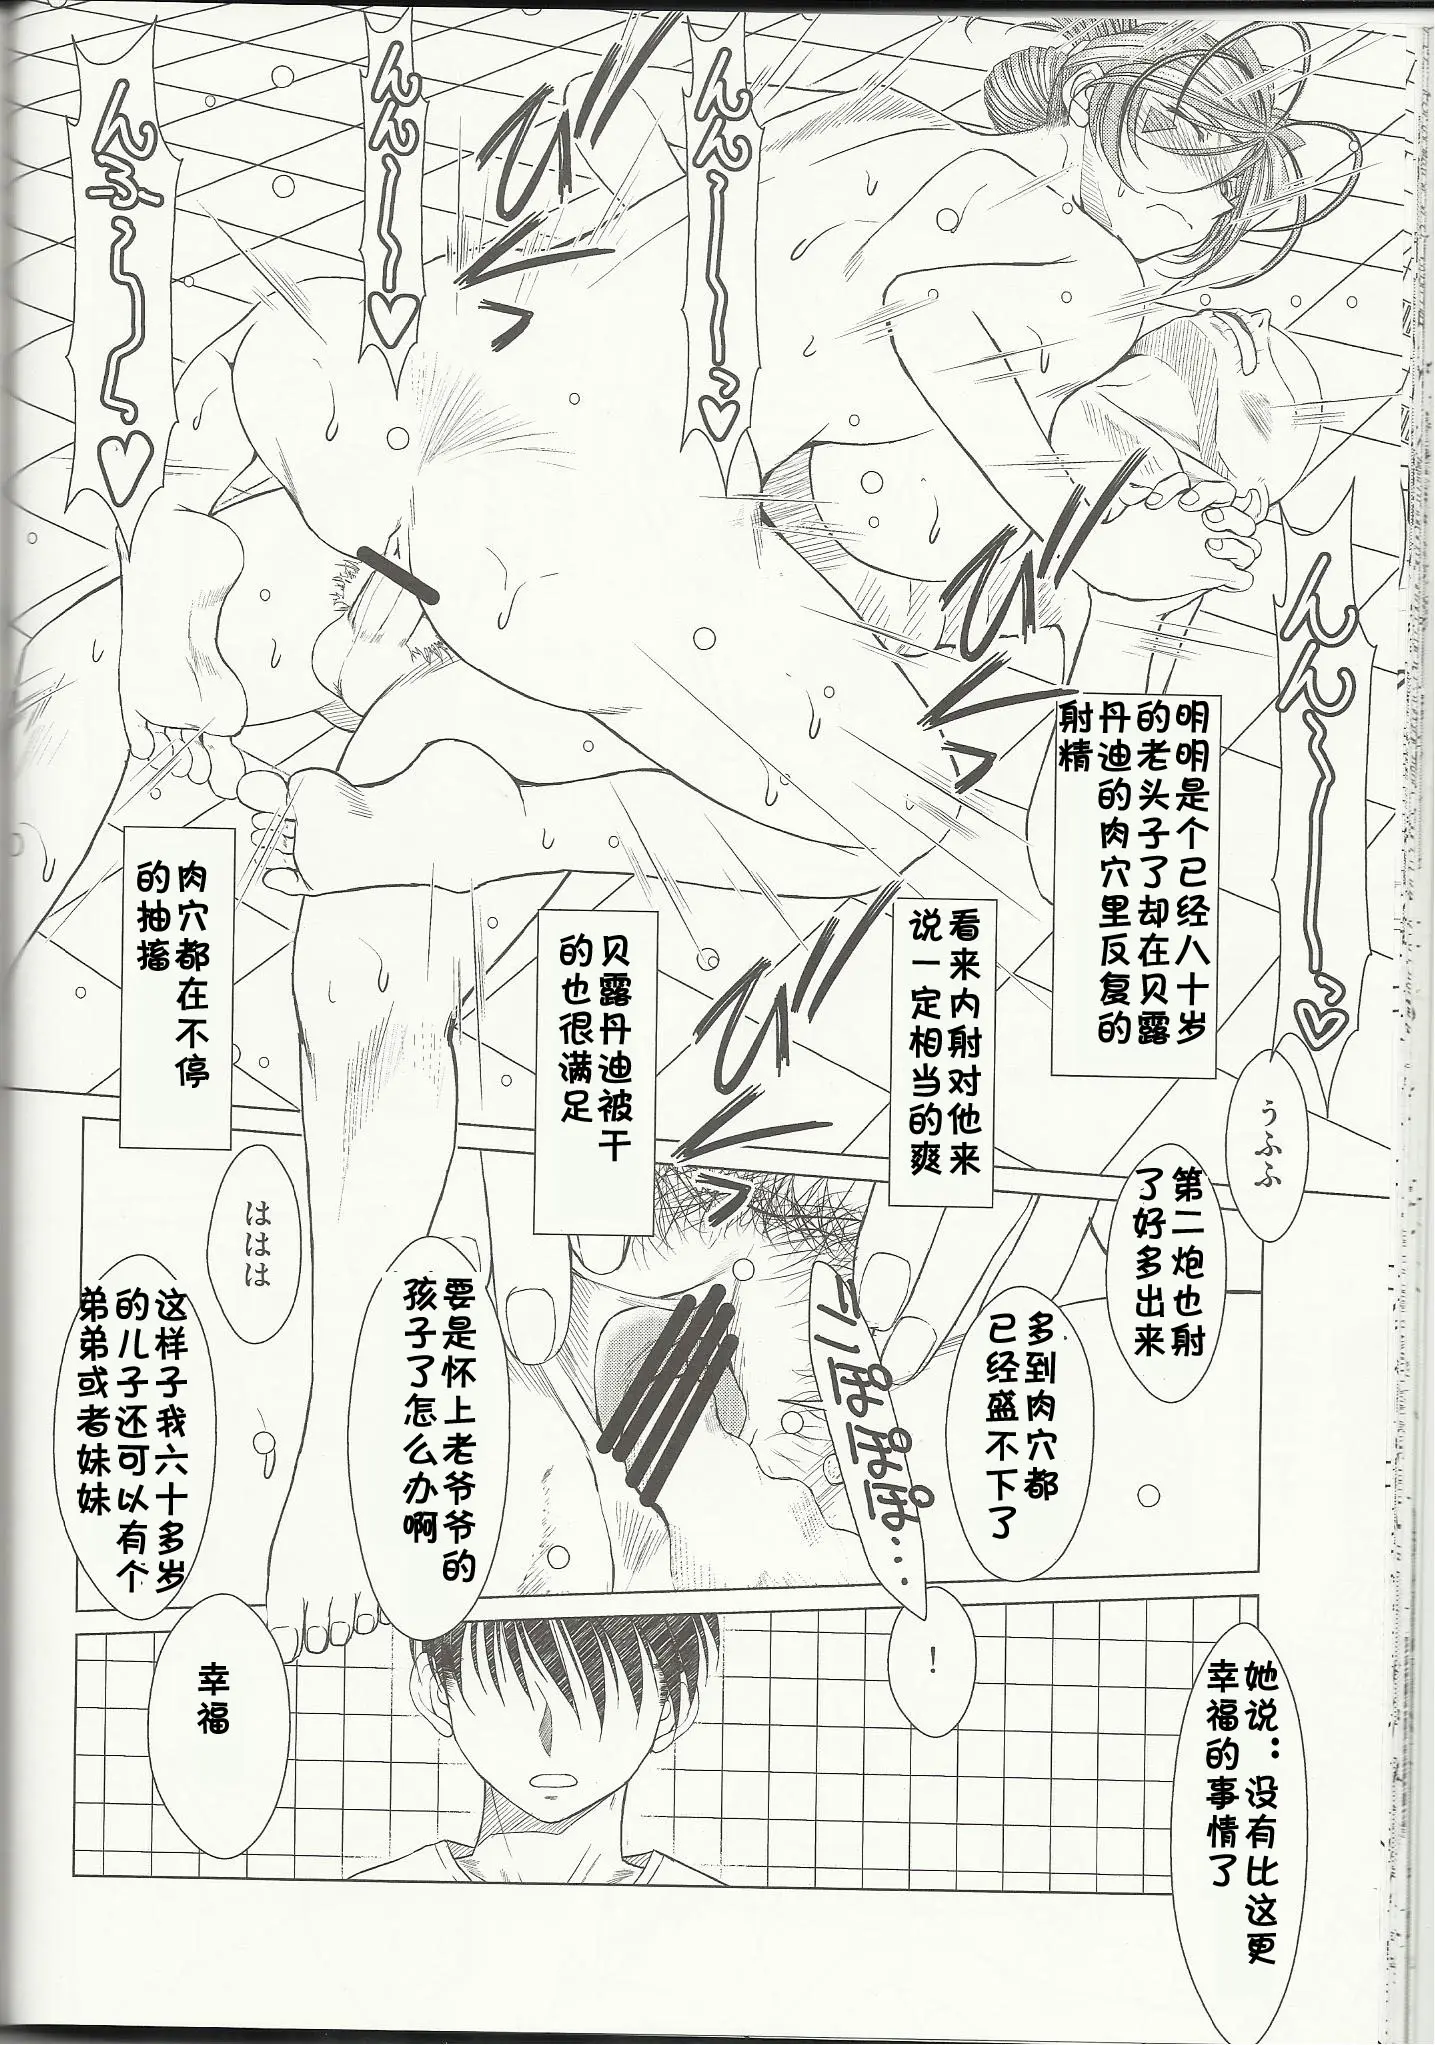 んん～～っ♡
んん～～っ♡
んん～♡
んふ～～♡
明明是个已经八十岁
的老头子了却在贝露
丹迪的肉穴里反复的
射精
看来内射对他来
说一定相当的爽
贝露丹迪被干
的也很满足
肉穴都在不停
的抽搐
うふふ
第二炮也射
了好多出来
多到肉穴都
已经盛不下了
要是怀上老爷爷的
孩子了怎么办啊
ははは
这样子我六十多岁
的儿子还可以有个
弟弟或者妹妹
！
她说：没有比这更
幸福的事情了
幸福